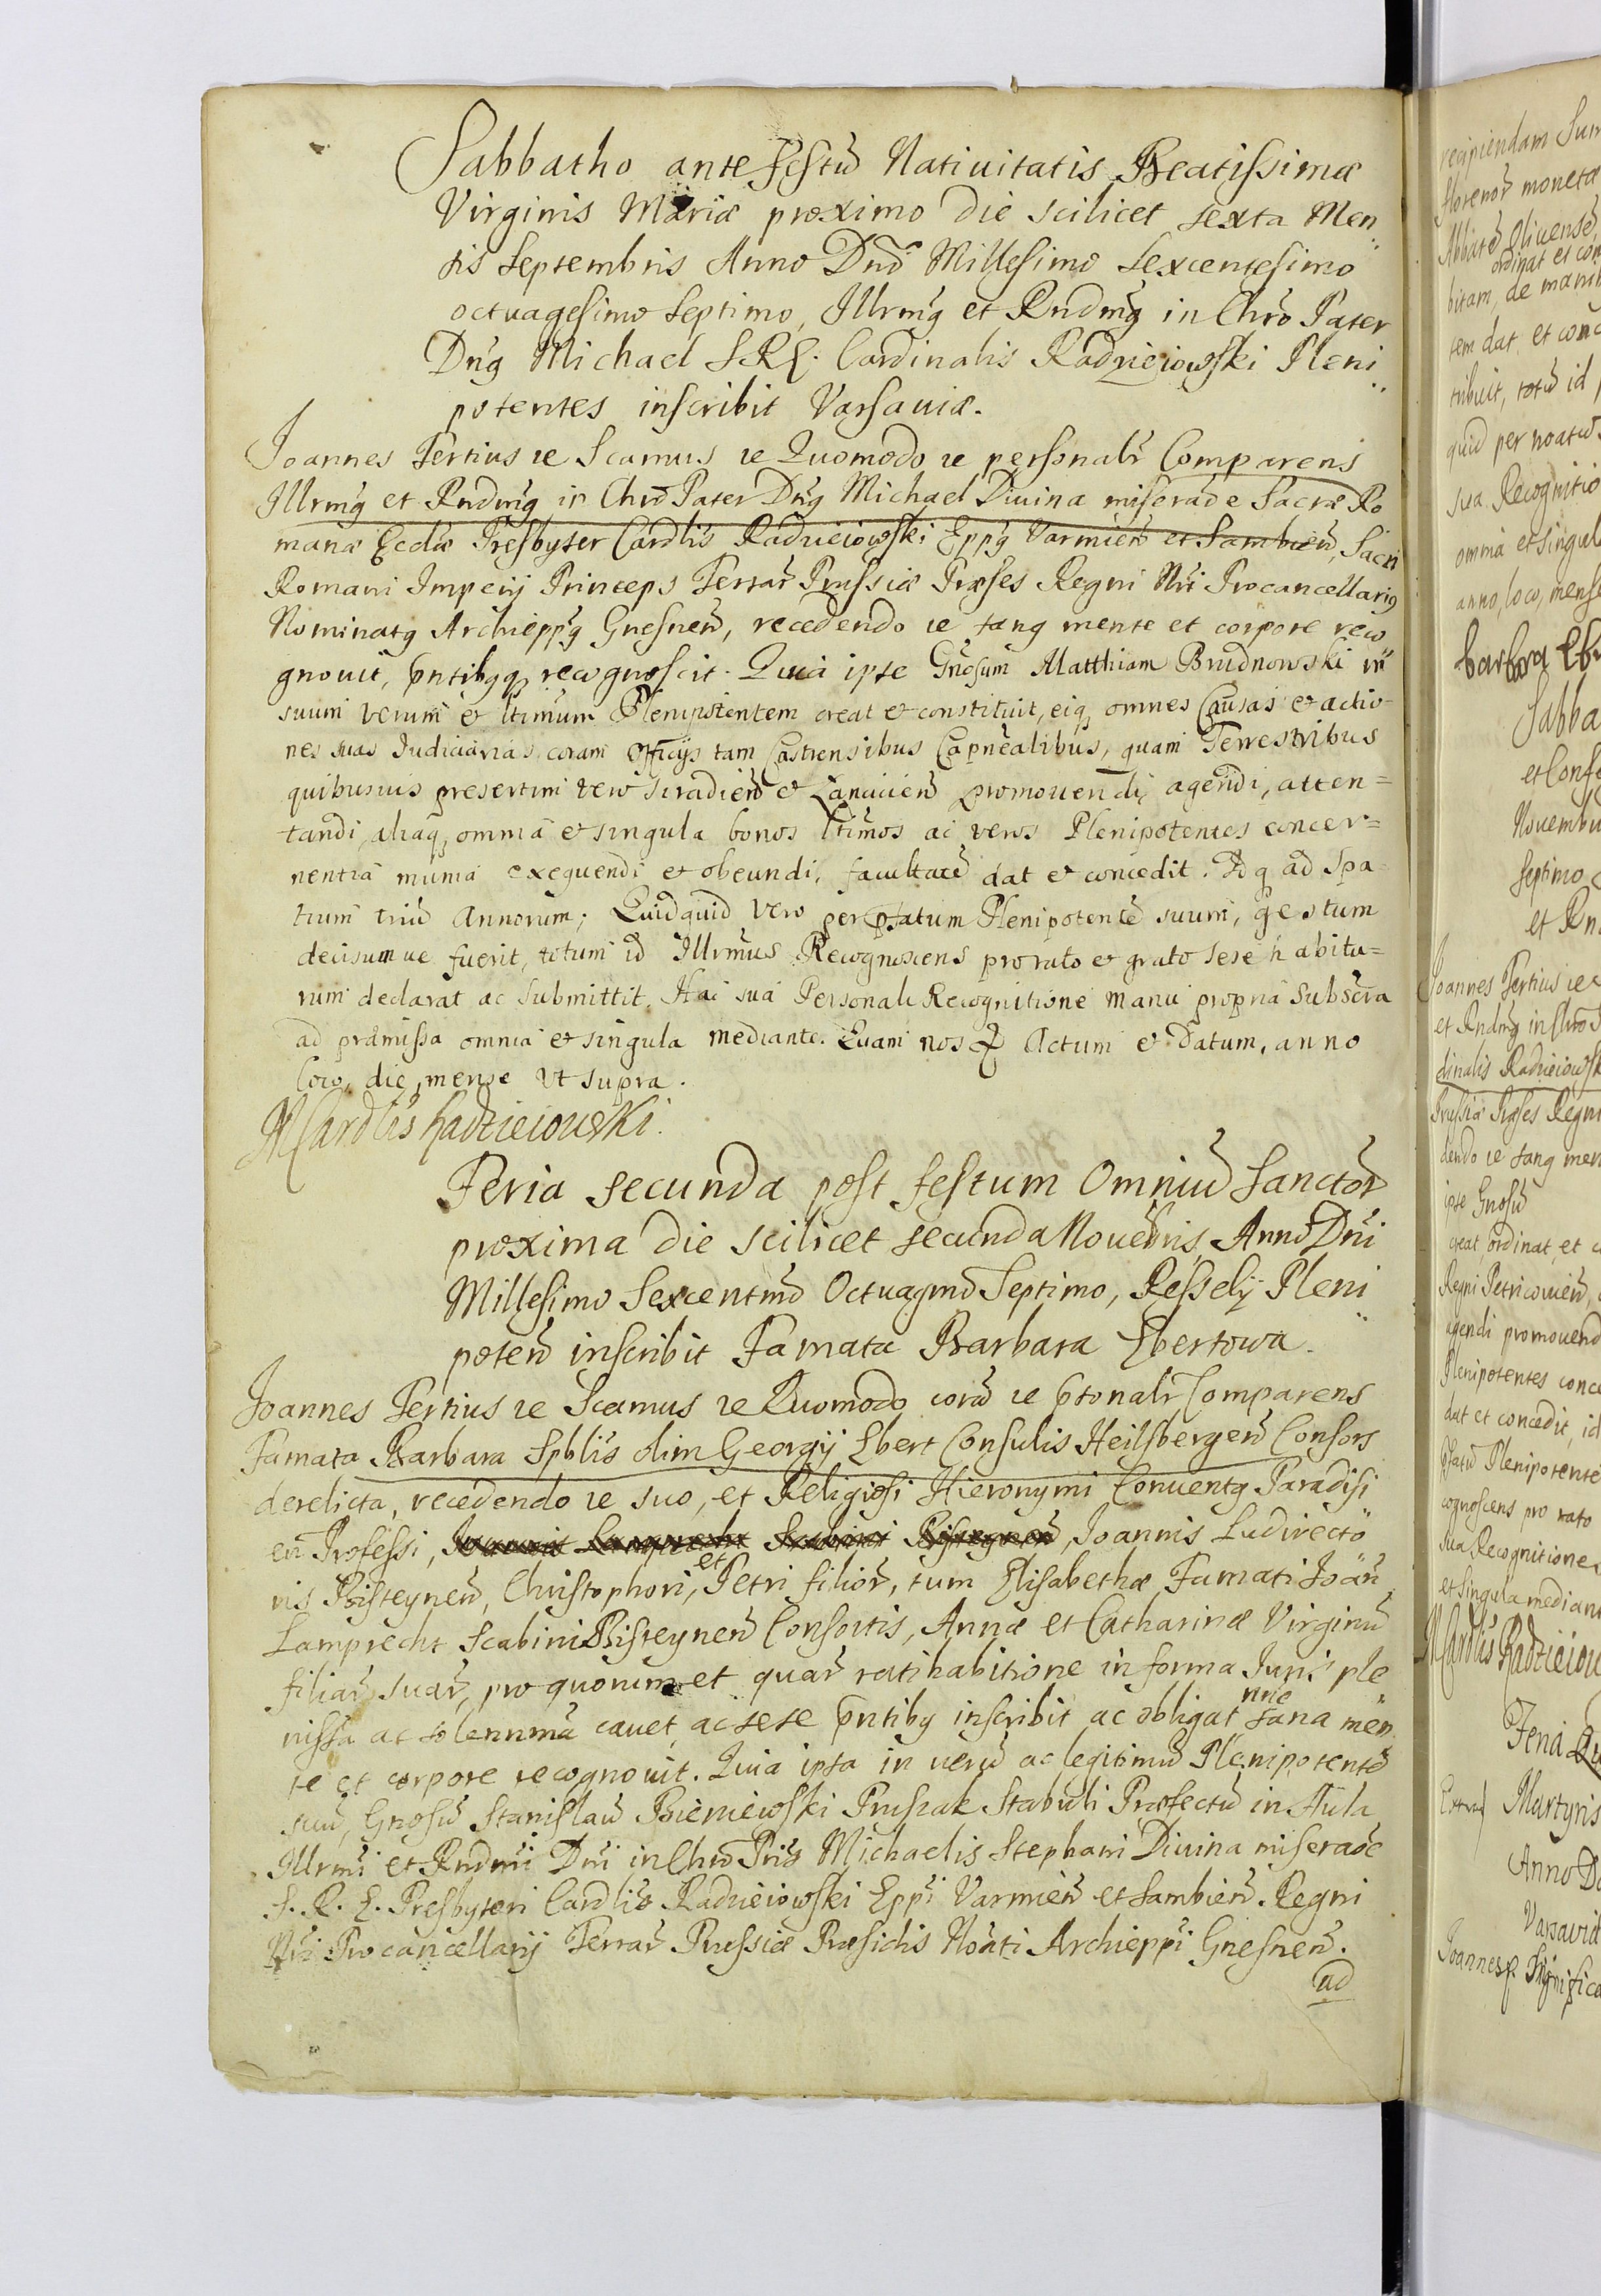 Sabbatho ante Festū Natiuitatis Beatissimæ
Virginis Mariæ proximo die scilicet sexta Men
sis Septembris Anno Dnō Millesimo Sexcentesimo
octuagesimo septimo, Illrmꝰ et Rndmꝰ in Chrō Pater
Dnꝰ Michael S.R.E. Cardinalis Radzieiowski Pleni
potentes inscribit Varsauiæ.
Joannes Tertius ꝛc Scamus ꝛc Quomodo ꝛc personalr Comparens
Illrmꝰ et Rndmꝰ in Chrō Pater Dnꝰ Michael Diuina miseraōe Sacræ Ro
manæ Eccliæ Presbyter Cardlis Radzieiowski Eppꝰ Varmień et Sambień, Sacri
Romani Imperij Princeps Terrar Prussiæ Præses Regni Nri Procancellariꝰ
Nominatꝰ Archieppꝰ Gnesneń, recedendo ꝛc sanꝰ mente et corpore reco
gnouit, pntibꝰqꝫ recognoscit. Quia ipse Gnosum Matthiam Brudnowski in
suum verum et ltimum Plenipotentem creat et constituit, eiqꝫ omnes Causas et actio-
nes suas Judiciarias coram Officijs tam Castrensibus Capnealibus, quam Terrestribus
quibusuis presertim vero Siradień et Lancicień promouendi, agendi, atten=
tandi, aliaqꝫ omnia et singula bonos ltimos ac veros Plenipotentes concer=
nentia munia exequendi et obeundi, facultatē dat et concedit. Idqꝫ ad spa-
tium triū Annorum; Quidquid vero per pfatum Plenipotentē suum, gestum
decisumue fuerit, totum id Illrmus Recognoscens pro rato et grato sese habitu=
rum declarat ac submittit. Hac sua Personali Recognitione manu propria Subscra
ad præmissa omnia et singula mediante. Quam nos ꝛc Actum et Datum, anno
loco, die, mense ut supra.
M Cardlis Radzieiowski.
Feria secunda post festum Omniū Sanctor
proxima die scilicet secunda Nouembris Anno Dni
Millesimo Sexcentmō Octuagmō Septimo, Resselij Pleni
poteń inscribit Famata Barbara Ebertowa.
Joannes Tertius ꝛc Scamus ꝛc Quomodo corā ꝛc psonalr Comparens
Famata Barbara Spblis olim Georgij Ebert Consulis Heilsbergeń Consors
derelicta, recedendo ꝛc suo, et Religiosi Hieronymi Conuentꝰ Paradisi
eń Professi, Joannis Lamprecht Scabini Bisteyneń Joannis Ludirecto
ris Bisteyneń, Christophori, et Petri filior, tum Elisabethæ Famati Joań
Lamprecht Scabini Bisteyneń Consortis, Annæ et Catharinæ Virginū
filiar suar, pro quorum et quar ratihabitione in forma Juris ple
nissa ac solennma cauet, ac sese pntibꝰ inscribit ac obligat nne sana men
te et corpore recognouit. Quia ipsa in verū ac legitimū Plenipotentē
suū, Gnosū Stanislaū Bieniewski Pruszak Stabuli Præfectū in Aula
Illrmi et Rndmi Dni in Chrō Pris Michaelis Stephani Diuina miseraōe
S. R. E. Presbyteri Cardlis Radzieiowski Eppi Varmień et Sambień. Regni
Nri Procancellarij Terrar Prussiæ Præsidis Noati Archieppi Gnesneń.
ad
recipiendam Sum
florenor monetæ
Abbatē Oliuensē,
ordinat et con
bitam, de manib
tem dat et conc
tribuit, totū id
quid per noatū
sua Recognitio
omnia et singul
anno, loco, mense
barbra Eb
Sabba
et Confe
Nouembr
septimo
et Rn
Joannes Tertius ꝛc
et Rndmꝰ in Chrō
dinalis Radzieiowsk
Prussiæ Præses Regni
dendo ꝛc sanꝰ men
ipse Gnosū
creat, ordinat, et
Regni Petricouień,
agendi promouend
Plenipotentes conce
dat et concedit, id
pfatū Plenipotentē
cognoscens pro rato
sua Recognitione
et singula median
M Cardlis Radzieiow
Feria
Martyris
Anno D
Varsauiæ
Joannes ꝛc Significa